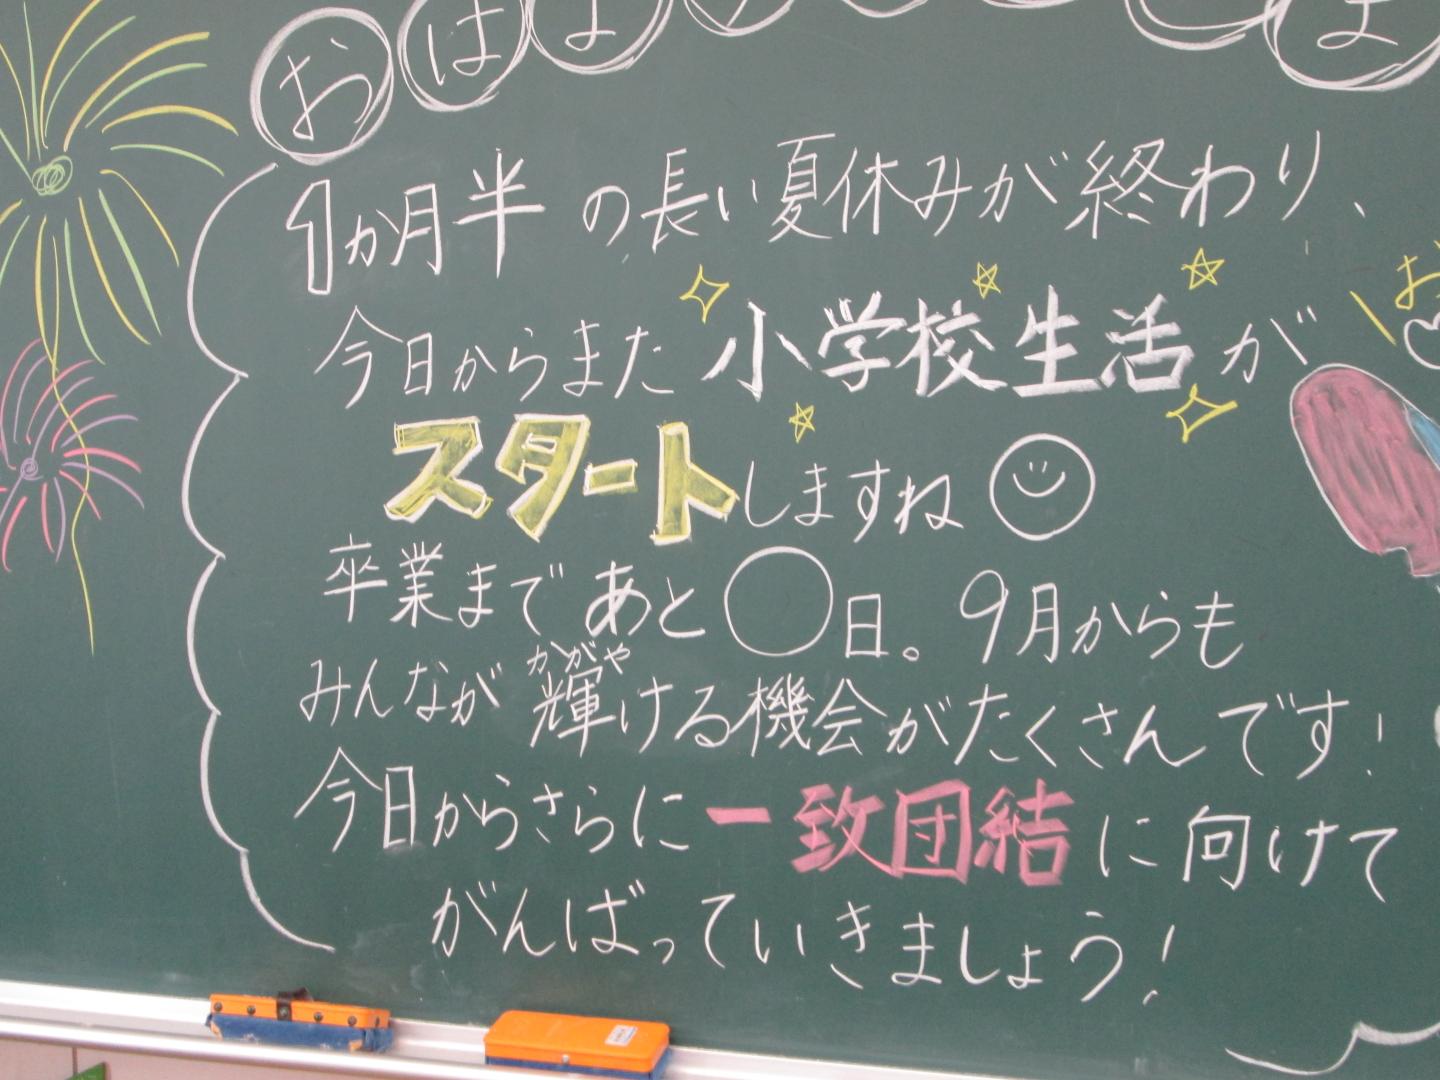 おはよ
よ
1か月半の長い夏休みが終わり、
今日からまた小学校生活が
スタートしますね
卒業まであと○日。9月からも
かがや
みんなが輝ける機会がたくさんです!
今日からさらに一致団結に向けて
がんばっていきましょう!
お